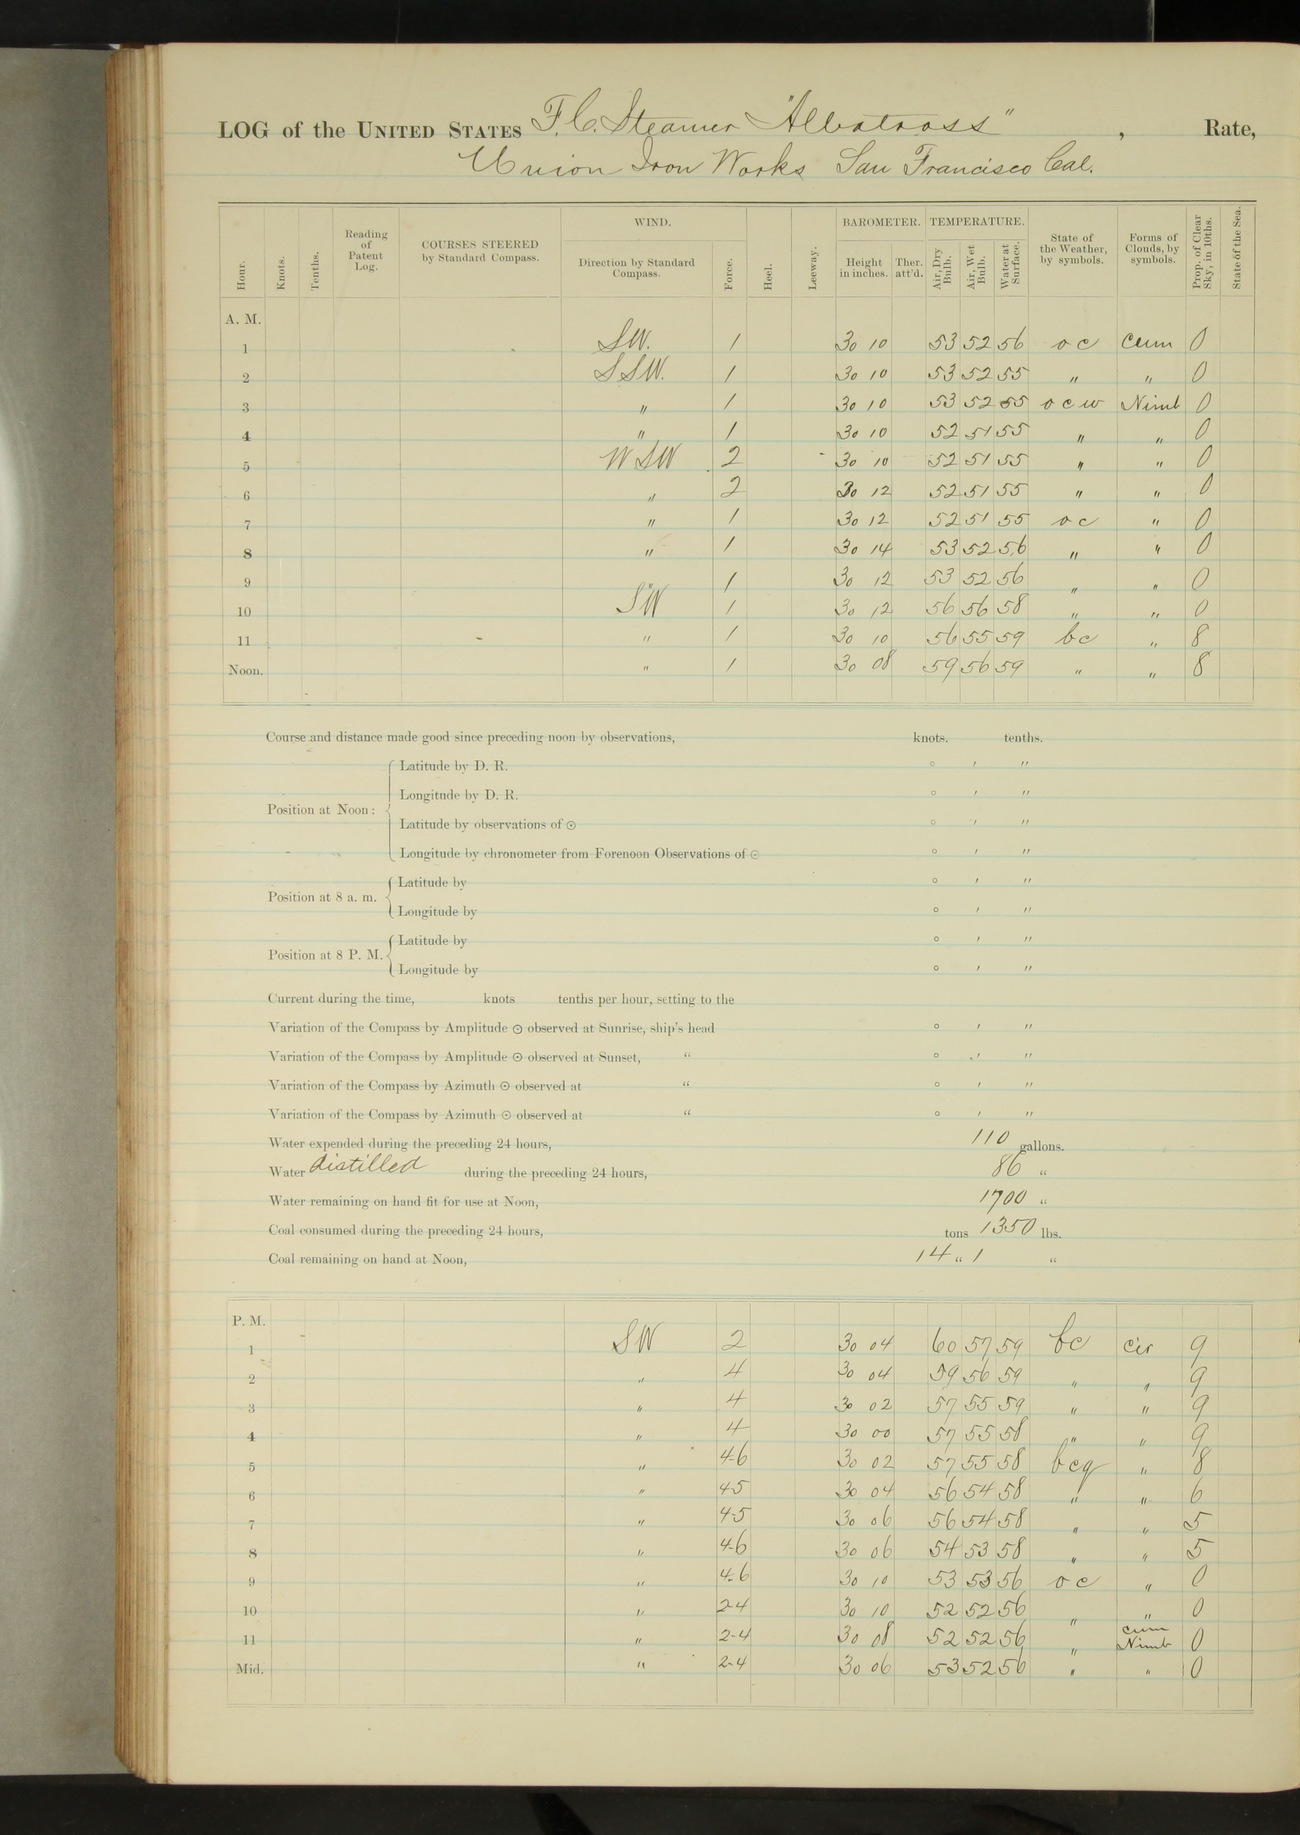 LOG of the UNITED STATES F.C. Steamer "Albatross", Rate,
Union Iron Works San Francisco Cal.
Hour. Knots. Tenths. Reading of Patent Log. COURSES STEERED by Standard Compass. WIND. Direction by Standard Compass. Force. Heel. Leeway. BAROMETER. Height in inches. Ther. att'd. TEMPERATURE. Air, Dry Bulb. Air, Wet Bulb. Water at Surface. State of the Weather, by symbols. Forms of Clouds, by symbols. Prop. of Clear Sky, in 10ths. State of the Sea.
A. M.
1 SW. 1 30 10 53 52 56 o c cum 0
2 SSW. 1 30 10 53 52 55 " " 0
3 " 1 30 10 53 52 55 o c w Nimb 0
4 " 1 30 10 52 51 55 " " 0
5 WSW 2 30 10 52 51 55 " " 0
6 " 2 30 12 52 51 55 " " 0
7 " 1 30 12 52 51 55 o c " 0
8 " 1 30 14 53 52 56 " " 0
9 " 1 30 12 53 52 56 " " 0
10 SW 1 30 12 56 56 58 " " 0
11 " 1 30 10 56 55 59 bc " 8
Noon. " 1 30 08 59 56 59 " " 8
Course and distance made good since preceding noon by observations, knots. tenths.
Position at Noon:
Latitude by D. R. ° ′ ″
Longitude by D. R. ° ′ ″
Latitude by observations of ☉ ° ′ ″
Longitude by chronometer from Forenoon Observations of ☉ ° ′ ″
Position at 8 a. m.
Latitude by ° ′ ″
Longitude by ° ′ ″
Position at 8 P. M.
Latitude by ° ′ ″
Longitude by ° ′ ″
Current during the time, knots tenths per hour, setting to the
Variation of the Compass by Amplitude ☉ observed at Sunrise, ship's head ° ′ ″
Variation of the Compass by Amplitude ☉ observed at Sunset, " ° ′ ″
Variation of the Compass by Azimuth ☉ observed at " ° ′ ″
Variation of the Compass by Azimuth ☉ observed at " ° ′ ″
Water expended during the preceding 24 hours, 110 gallons.
Water distilled during the preceding 24 hours, 86 "
Water remaining on hand fit for use at Noon, 1700 "
Coal consumed during the preceding 24 hours, tons 1350 lbs.
Coal remaining on hand at Noon, 14 " 1 "
P. M.
1 SW 2 30 04 60 57 59 bc cir 9
2 " 4 30 04 59 56 59 " " 9
3 " 4 30 02 57 55 59 " " 9
4 " 4 30 00 57 55 58 " " 9
5 " 4-6 30 02 57 55 58 bcq " 8
6 " 4-5 30 04 56 54 58 " " 6
7 " 4-5 30 06 56 54 58 " " 5
8 " 4-6 30 06 54 53 58 " " 5
9 " 4-6 30 10 53 53 56 o c " 0
10 " 2-4 30 10 52 52 56 " " 0
11 " 2-4 30 08 52 52 56 " cum Nimb 0
Mid. " 2-4 30 06 53 52 56 " " 0